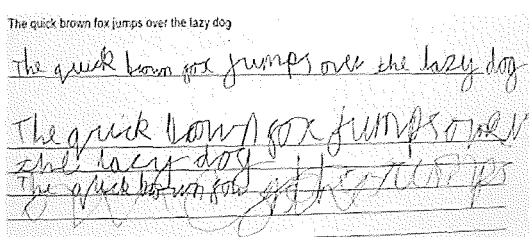 The quick brown fox jumps over the lazy dog
The quick brown fox jumps over the lazy dog
The quick brown fox jumps over
the lazy dog
The quick brown fox jumps